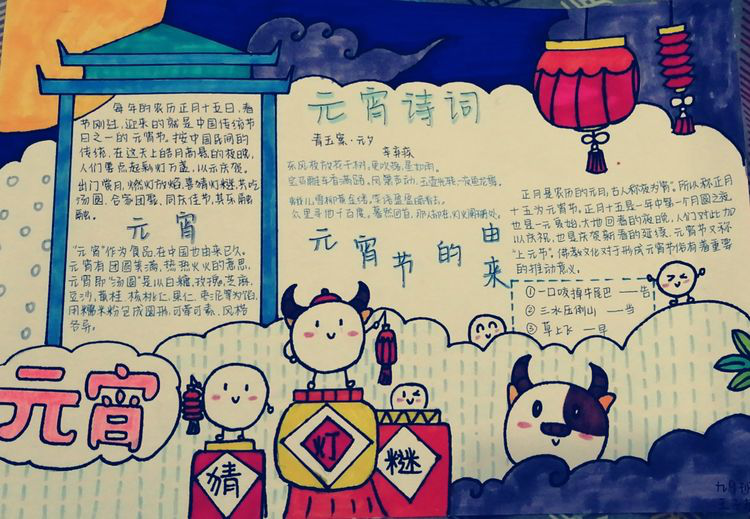 每年的农历正月十五日,春
节刚过,迎来的就是中国传统节
日之一的元宵节。按中国民间的
传统,在这天上皓月高悬的夜晚,
人们要点起彩灯万盏,以示庆贺。
出门赏月,燃灯放焰,喜猜灯谜,共吃
汤圆,合家团聚、同乐佳节,其乐融
融。
元宵
“元宵”作为食品,在中国也由来已久。
元宵有团圆美满,热热火火的意思,
元宵即“汤圆”是以白糖、玫瑰、芝麻、
豆沙、黄桂、核桃仁、果仁、枣泥等为馅,
用糯米粉包成圆形,可荤可素、风格
各异。
元宵诗词
青玉案·元夕
辛弃疾
东风夜放花千树,更吹落,星如雨。
宝马雕车香满路。凤箫声动,玉壶光转,一夜鱼龙舞。
蛾儿雪柳黄金缕,笑语盈盈暗香去。
众里寻他千百度,蓦然回首,那人却在,灯火阑珊处。
元宵节的由来
正月是农历的元月,古人称夜为宵。所以称正月
十五为元宵节。正月十五是一年中第一个月圆之夜,
也是一元复始,大地回春的夜晚,人们对此加
以庆祝,也是庆贺新春的延续。元宵节又称
“上元节”。佛教文化对于形成元宵节俗有着重要
的推动意义。
① 一口咬掉牛尾巴 ——告
② 三水压倒山 ——当
③ 草上飞 —早
元宵
猜
灯
谜